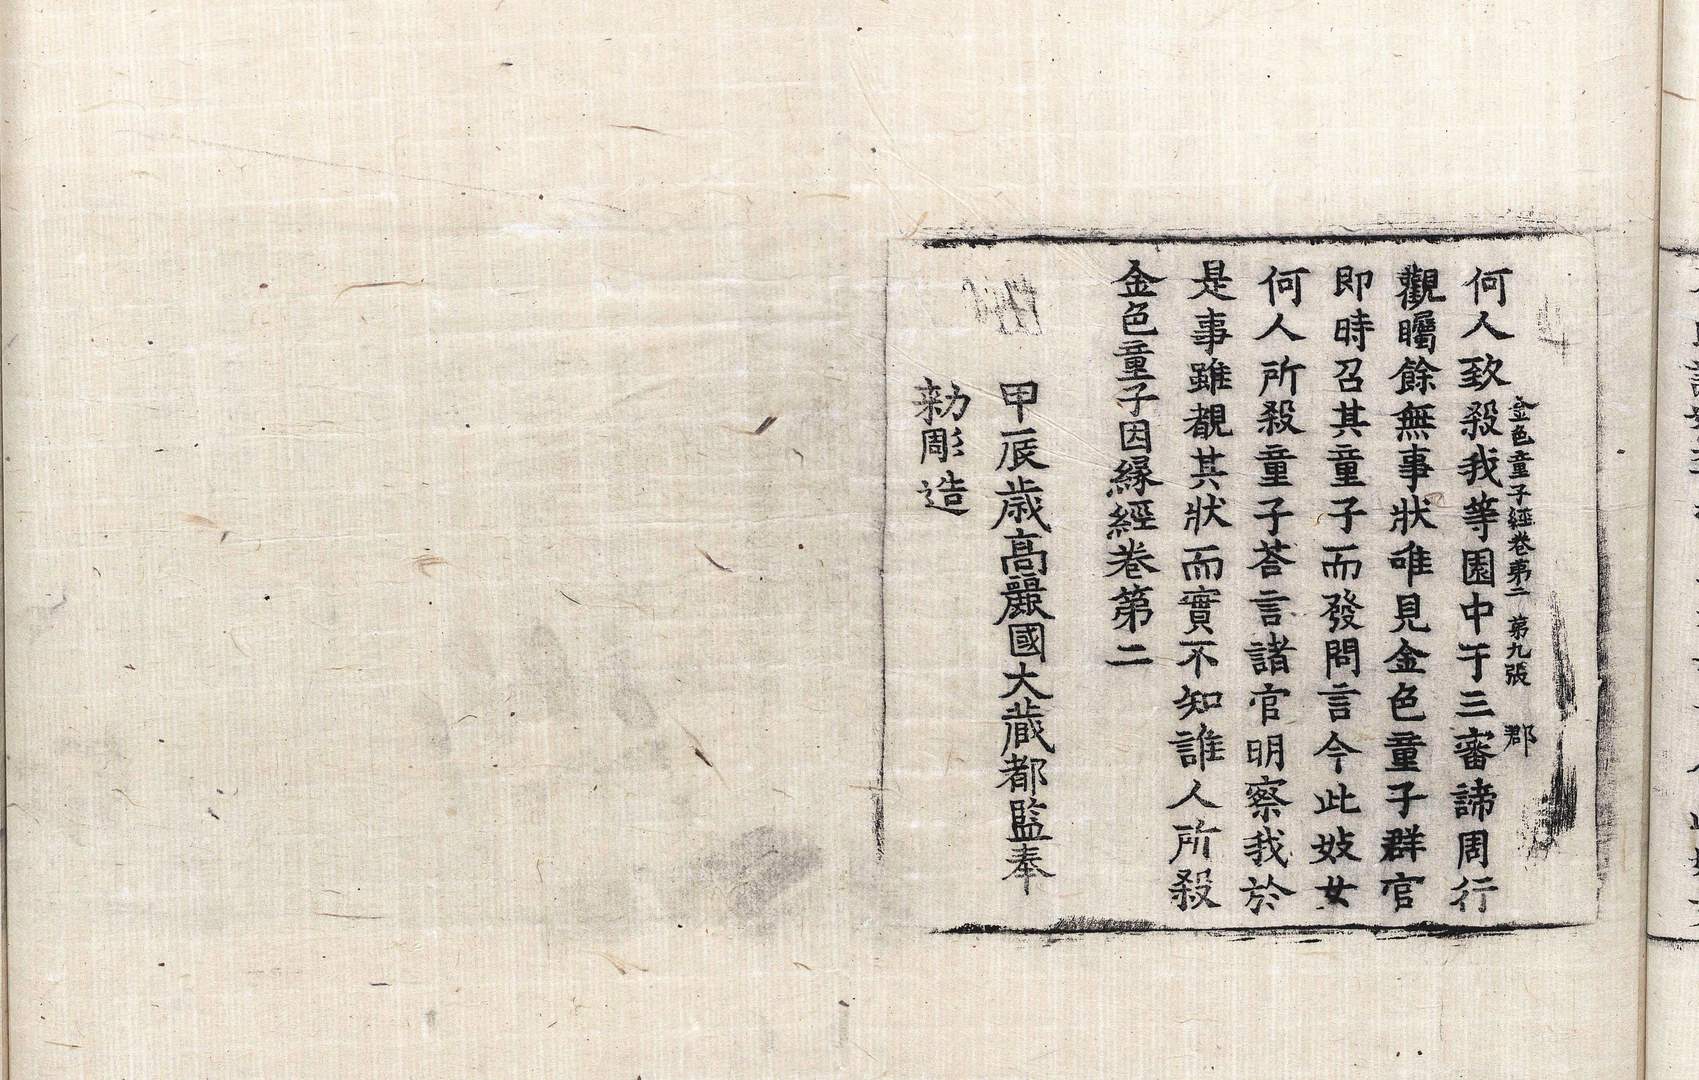 金色童子經卷第二　第九張　郡
何人致殺我等園中于三審諦周行
觀矚餘無事狀唯見金色童子群官
即時召其童子而發問言今此妓女
何人所殺童子荅言諸官明察我於
是事雖覩其狀而實不知誰人所殺
金色童子因緣經卷第二
甲辰歳高麗國大藏都監奉
勑彫造